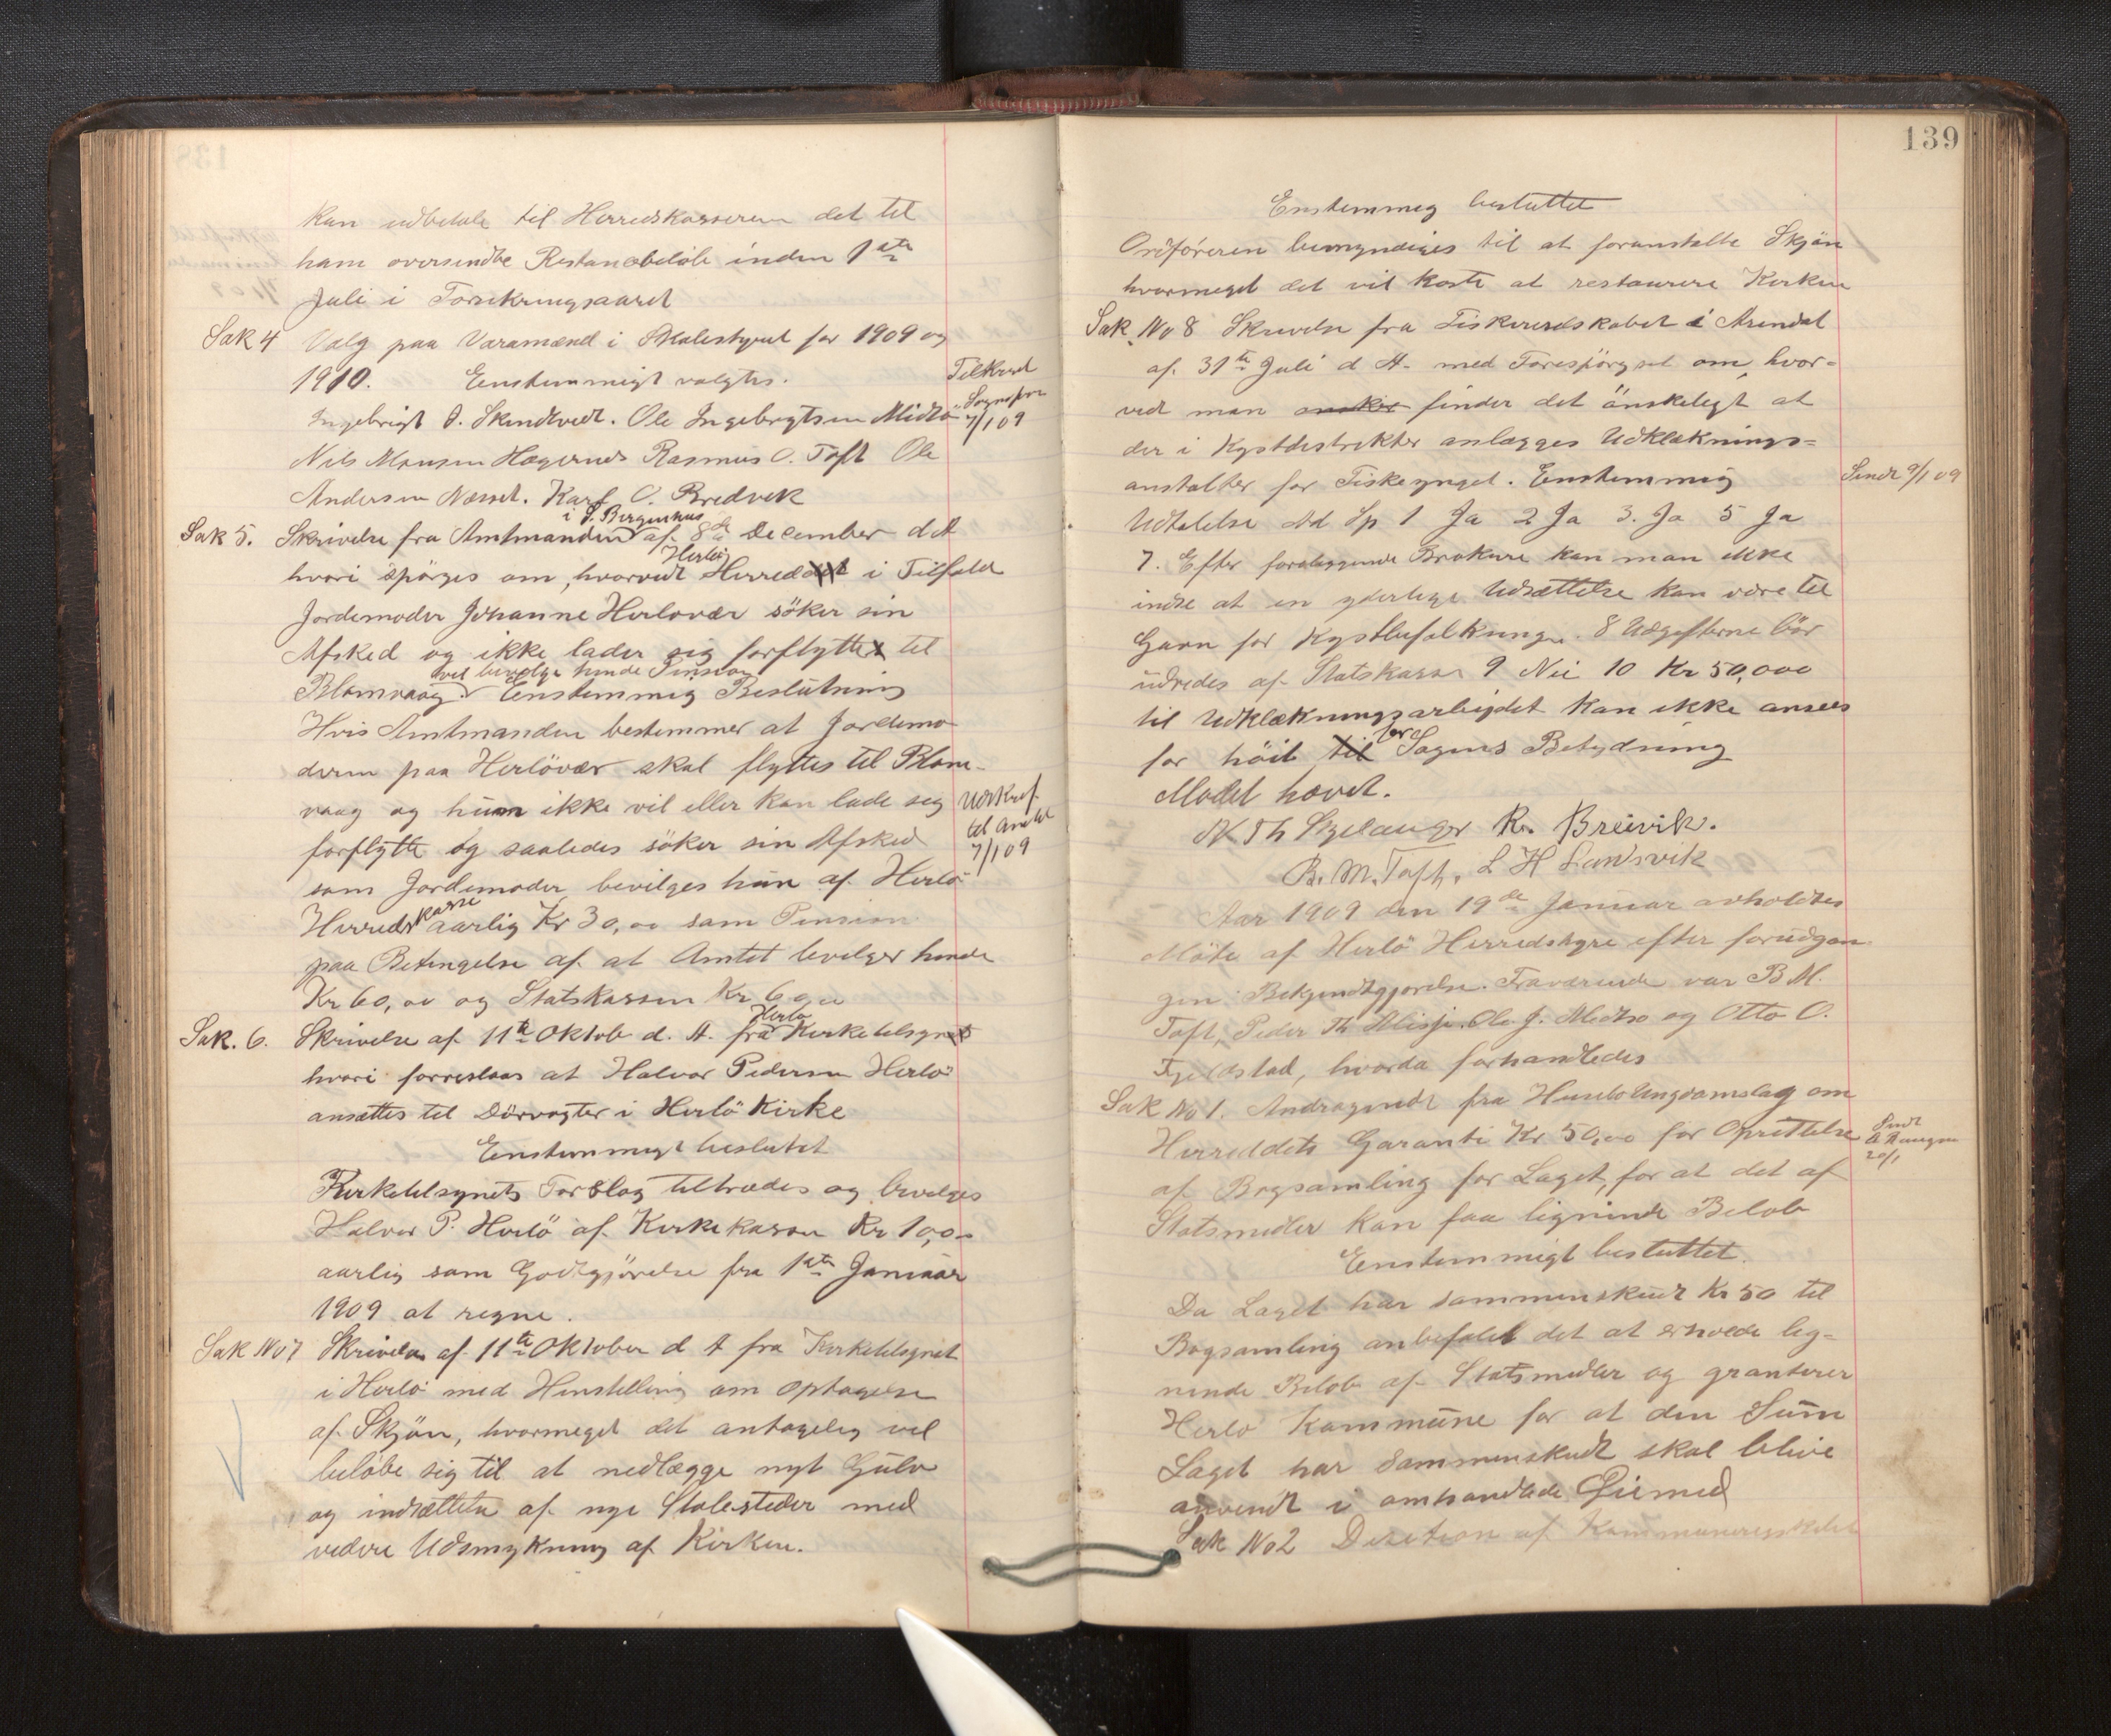 kan udbetale til Herredskasseren det til
ham oversendte Restancebeløb inden 1ste
Juli i Forsikringsaaret
Sak 4 Valg paa Varamænd i Skolestyret for 1909 og
1910. Eenstemmigt valgtes.
Tilkrevet
Sognepr
7/1 09
Ingebrigt O. Skindtvedt. Ole Ingebrigtsen Midtö
Nils Monsen Hægernes Rasmus O. Toft Ole
Andersen Næsset. Karl O. Bredvik
Sak 5. Skrivelse fra Amtmanden i S. Bergenhus af 8de December d A
hvori spörges om, hvorvidt Herlö Herred i Tilfæld
Jordemoder Johanne Herlovær söker sin
Afsked og ikke lader sig forflytte til
Blomvaag vil bevilge hende Pension Enstemmig Beslutning
Hvis Amtmanden bestemmer at Jordemo
deren paa Herlövær skal flyttes til Blom-
vaag og hun ikke vil eller kan lade sig
forflytte og saaledes söker sin Afsked
Udskref.
til Amtet
7/1 09
som Jordemoder bevilges hun af Herlö
Herredskasse aarlig Kr 30,00 som Pension
paa Betingelse af at Amtet bevilger hende
Kr 60,00 og Statskassen Kr 60,00
Sak. 6. Skrivelse af 11te Oktob d. A. fra Herlö Kirketilsyn
hvori forreslaas at Halvor Pedersen Herlö
ansættes til Dörvogter i Herlö Kirke
Eenstemmigt beslutet
Kirketilsynets Forslag tiltrædes og bevilges
Halvor P. Herlö af Kirkekassen Kr 10,00
aarlig som Godtgjörelse fra 1ste Januar
1909 at regne.
Sak No 7 Skrivelse af 11te Oktober d A fra Kirketilsynet
i Herlö med Henstilling om Optagelse
af Skjön, hvormeget det antagelig vil
belöbe sig til at nedlægge nyt Gulv
og indsættelse af nye Stolesteder med
vedere Udsmykning af Kirken.
139
Enstemmig besluttet
Ordföreren bemyndiges til at foranstalte Skjön
hvormeget det vil koste at restaurere Kirken
Sak No 8 Skrivelse fra Fiskeriselskabet i Arendal
af 31te Juli d A. med Forespörgsel om, hvor-
vidt man finder det önskeligt at
der i Kystdistrikter anlægges Udklæknings-
anstalter for Fiskeyngel. Enstemmig
Sendt 9/1 09
Udtalelse Ad Sp 1 Ja 2 Ja 3. Ja 5 Ja
7. Efter foreliggende Brokure kan man ikke
indse at en yderlige Udsættelse kan være til
Gavn for Kystbefolkningen. 8 Udgifterne bör
udredes af Statskassen 9 Nei 10 Kr 50,000
til Udklækningsarbeidet kan ikke ansees
for höit for Sagens Betydning
Mödet hævet.
N Th Sjelanger R. Breivik.
B. M. Toft. L H Landsvik
Aar 1909 den 19de Januar avholdtes
Möte af Herlö Herredstyre efter forudgan
gen Bekjendtgjörelse. Fraværende var B M.
Toft, Peder Th Ole J. Midtö og Otto O.
Fjeldstad, hvorda forhandledes
Sak No 1. Andragende fra Husebö Ungdomslag om
Herreddets Garanti Kr 50,00 for Oprettelse
Sendt
20/1
af Bogsamling for Laget, for at det af
Statsmidler kan faa lignende Belöb
Eenstemmigt besluttet.
Da Laget har sammenskudt Kr 50 til
Bogsamling anbefales det at erholde lig-
nende Belöb af Statsmidler og granterer
Herlö Kommune for at den Sum
Laget har sammenskudt skal blive
anvendt i omhandlede Öiemed
Sak No 2 Desition af Kommuneregnskabet